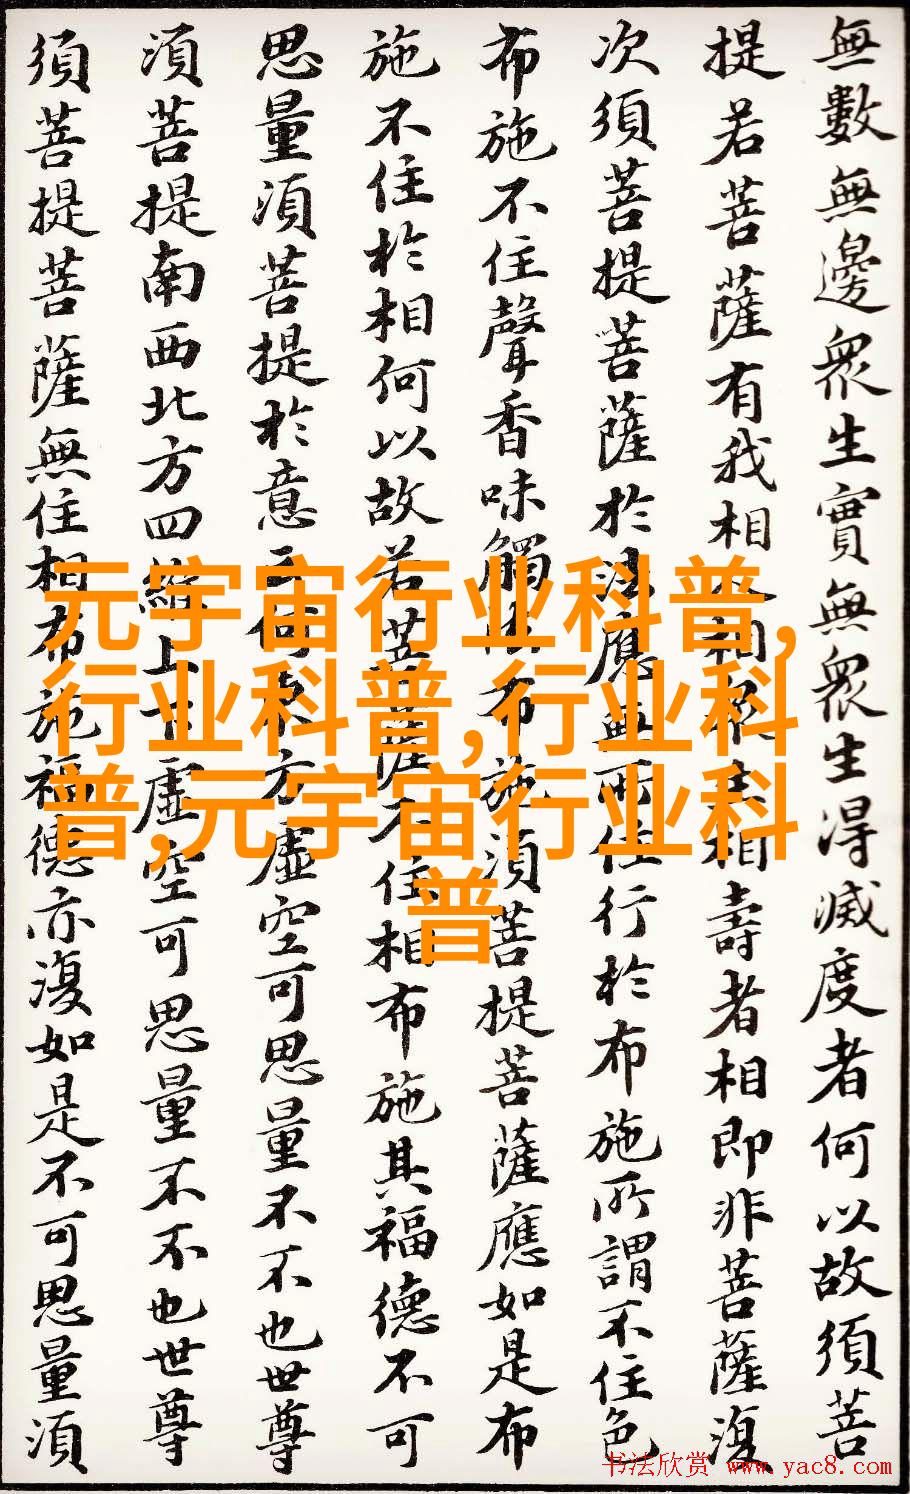 無數無邊衆生實無衆生得滅度者何以故須菩
提若菩薩有我相人相衆生相壽者相即非菩薩復
次須菩提菩薩於法應無所住行於布施所謂不住色
布施不住聲香味觸法布施須菩提菩薩應如是布
施不住於相何以故若菩薩不住相布施其福德不可
思量須菩提於意云何東方虛空可思量不不也世尊
須菩提南西北方四維上下虛空可思量不不也世尊
須菩提菩薩無住相布施福德亦復如是不可思量須
元宇宙行业科普,
行业科普,行业科
普,元宇宙行业科
普
书法欣赏 www.yac8.com